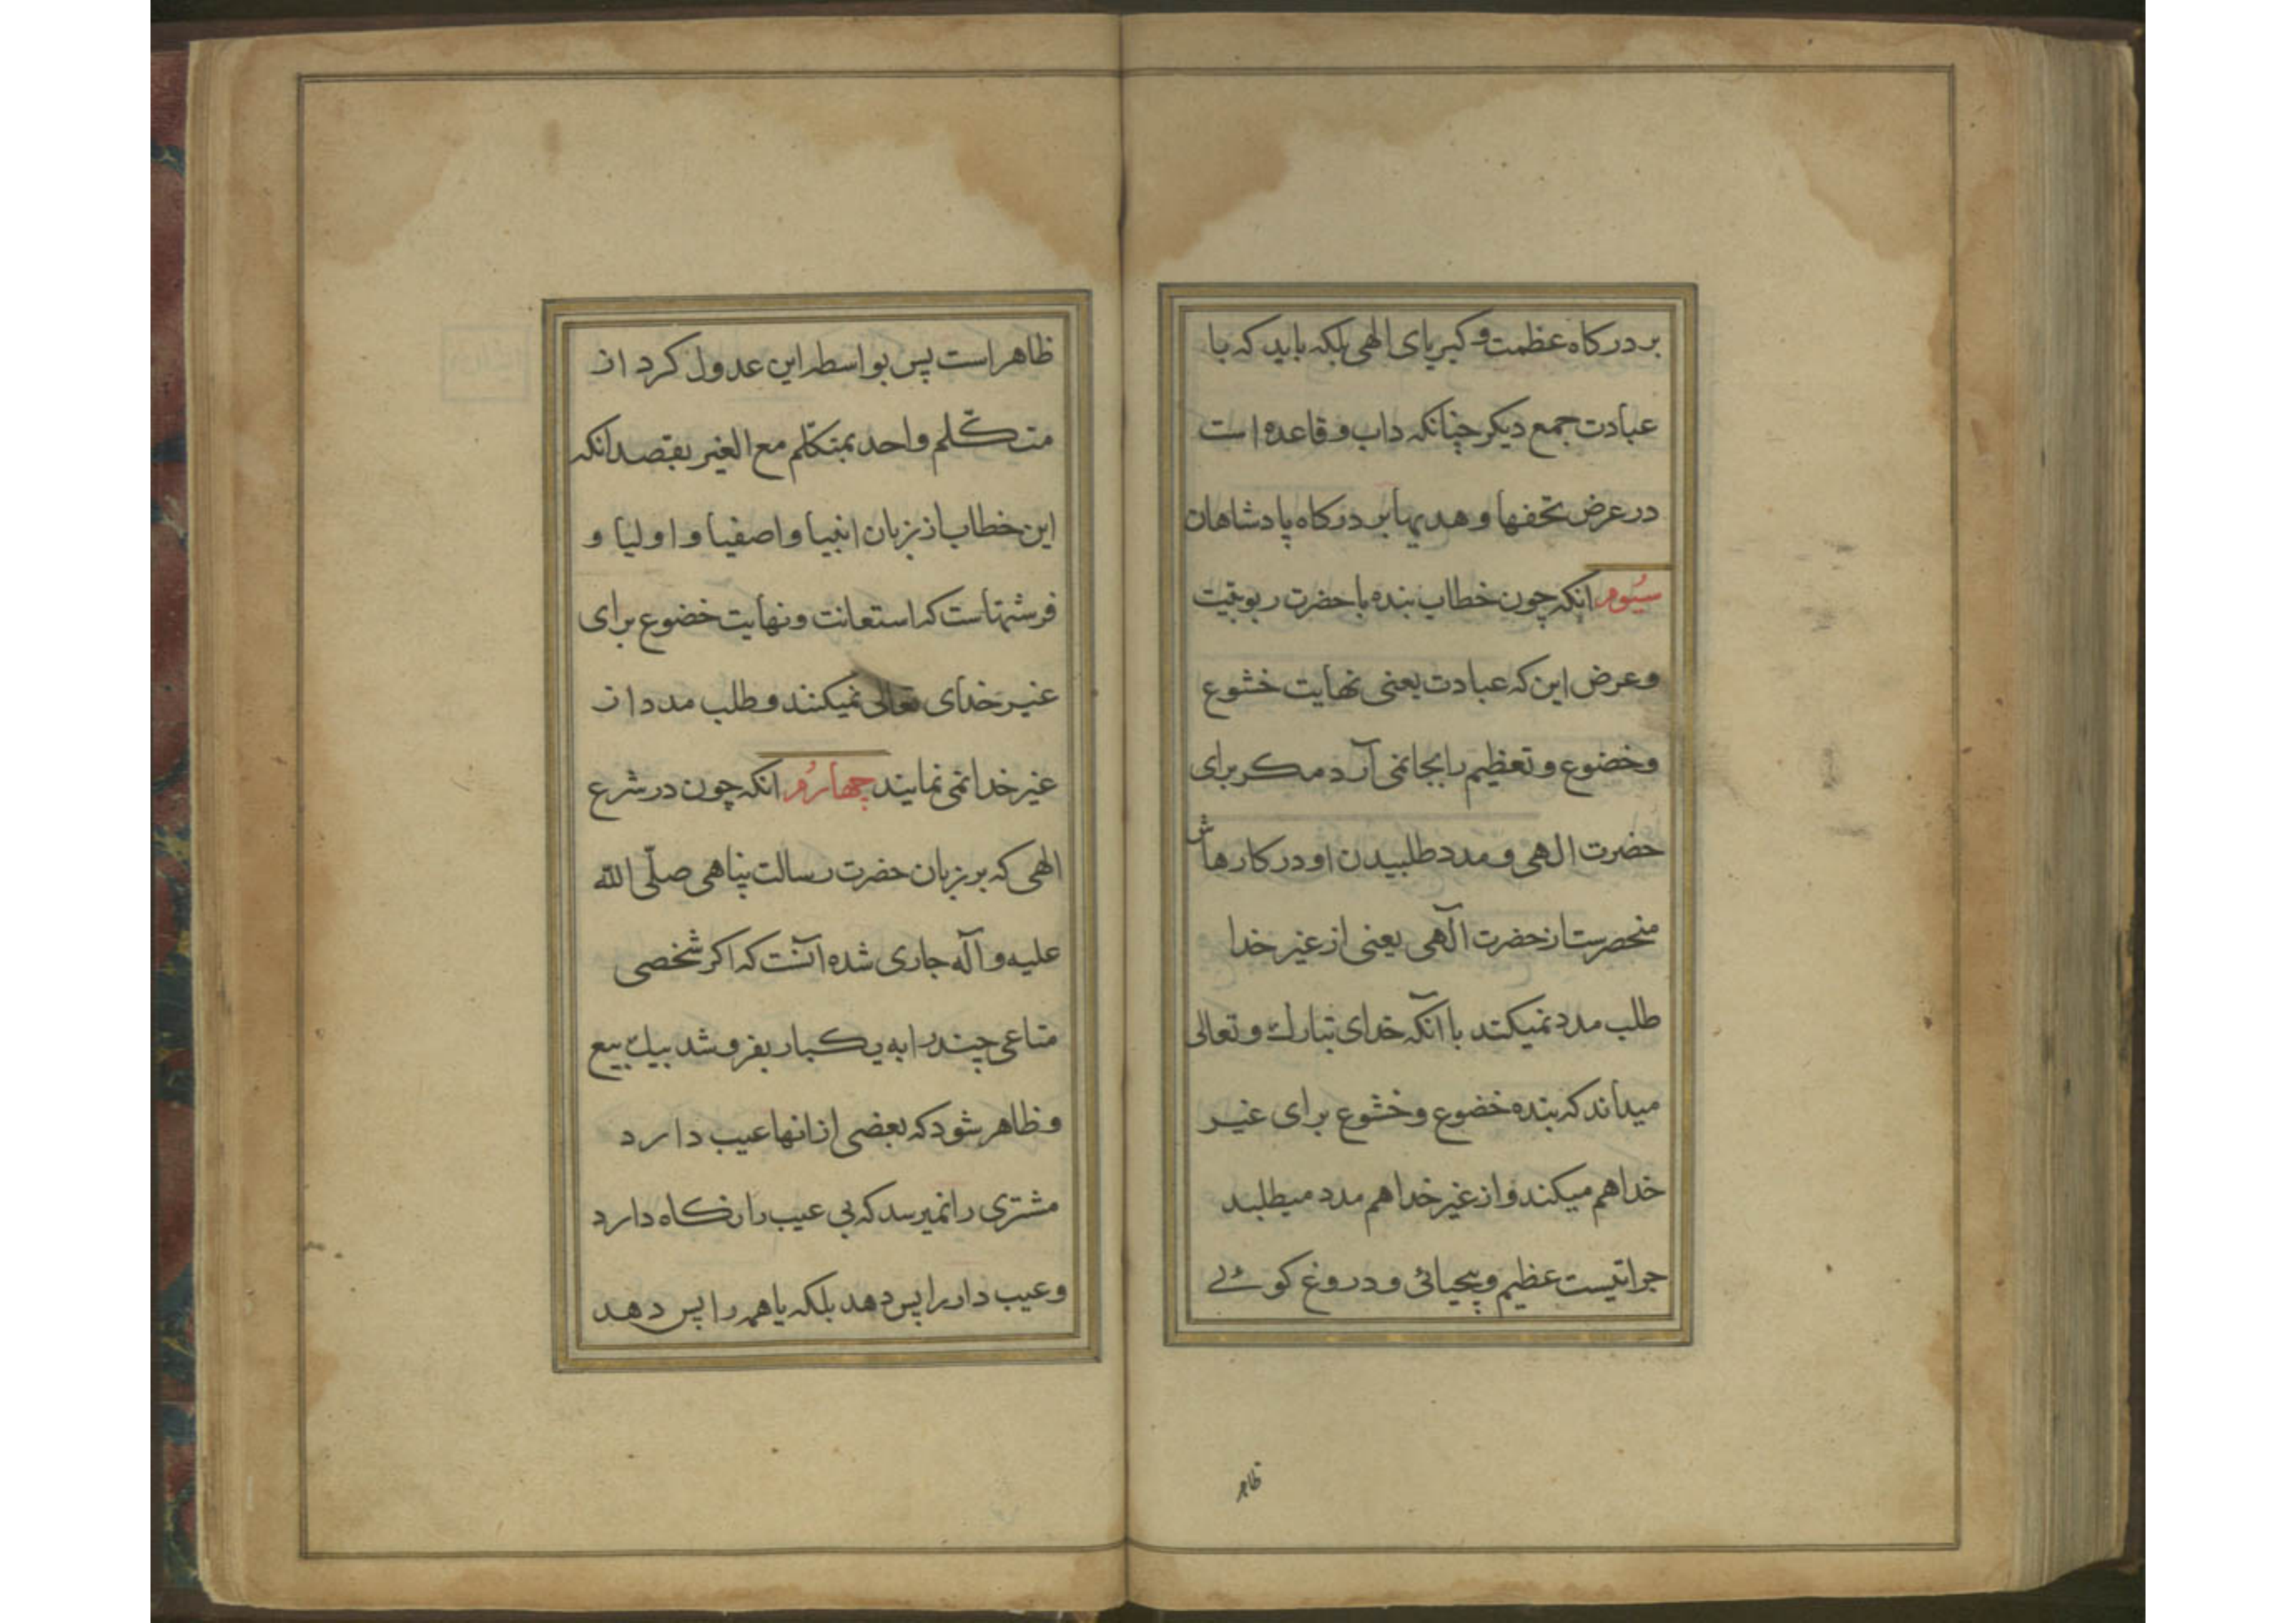 بر درکاه عظمت و کبریای الهی بلکه باید که با
عبادت جمع دیکر چنانکه داب و قاعده است
در عرض تحفها و هدیها بر درکاه پادشاهان
سیُوم انکه چون خطاب بنده با حضرت ربوبیت
و عرض این که عبادت یعنی نهایت خشوع
و خضوع و تعظیم را بجا نمی آرد مکر برای
حضرت الهی و مدد طلبیدن او در کارهاش
منحصرست از حضرت آلهی یعنی از غیر خدا
طلب مدد نمیکند با آنکه خدای تبارك و تعالی
میداند که بنده خضوع و خشوع برای غیر
خدا هم میکند و از غیر خدا هم مدد میطلبد
جراتیست عظیم و بیحیائی و دروغ کوئے
ظاهر
ظاهر است پس بواسطه این عدول کرد از
متکلّم واحد بمتکلّم مع الغیر بقصد انکه
این خطاب از زبان انبیا و اصفیا و اولیا و
فرشتهاست که استعانت و نهایت خضوع برای
غیر خدای تعالی نمیکنند و طلب مدد از
غیر خدا نمی نمایند چهارُم انکه چون در شرع
الهی که بر زبان حضرت رسالت پناهی صلّی الله
علیه و آله جاری شده آنست که اکر شخصی
متاعی چند را به یکبار بفروشد بیك بیع
و ظاهر شود که بعضی از انها عیب دارد
مشتری را نمیرسد که بی عیب را نکاه دارد
و عیب دار را پس دهد بلکه یا همه را پس دهد